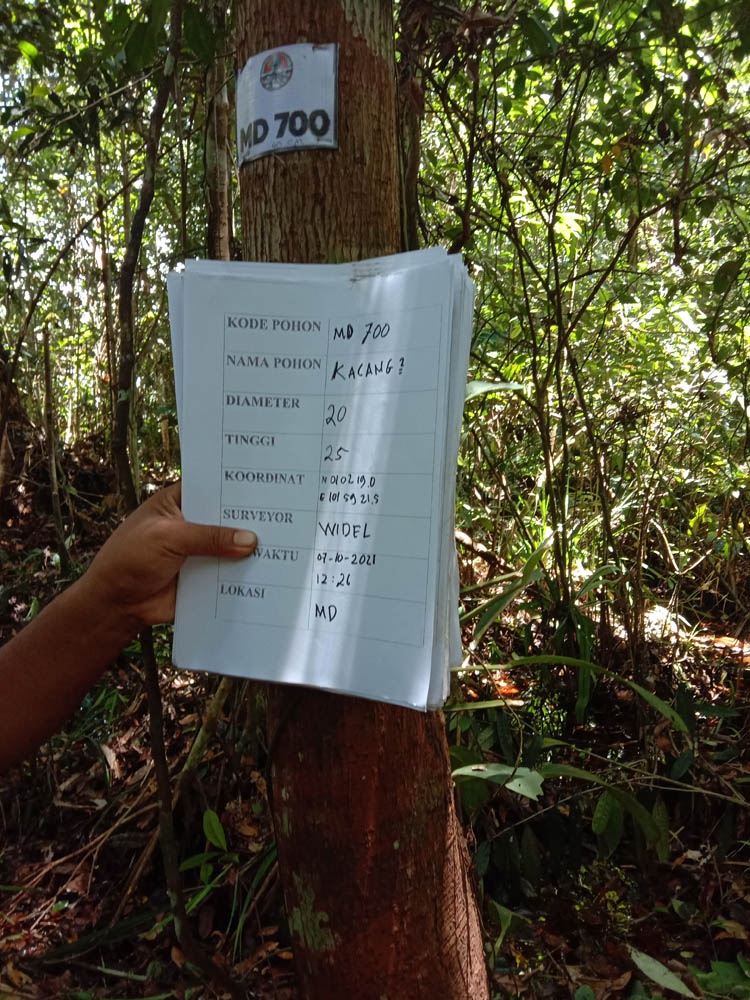 MD 700
KODE POHON MD 700
NAMA POHON KACANG?
DIAMETER 20
TINGGI 25
KOORDINAT N 01 02 19,0
E 101 59 21,5
SURVEYOR WIDEL
WAKTU 07-10-2021
12:26
LOKASI MD